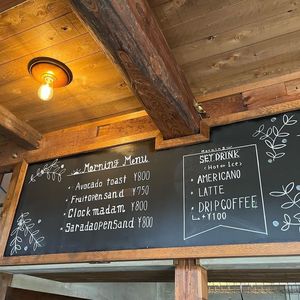 Morning Menu
• Avocado toast ¥800
• Fruitopensand ¥750
• Clockmadam ¥800
• Saradaopensand ¥800
Morning
SET DRINK
<Hot or Ice>
• AMERICANO
• LATTE
• DRIPCOFFEE
+¥100